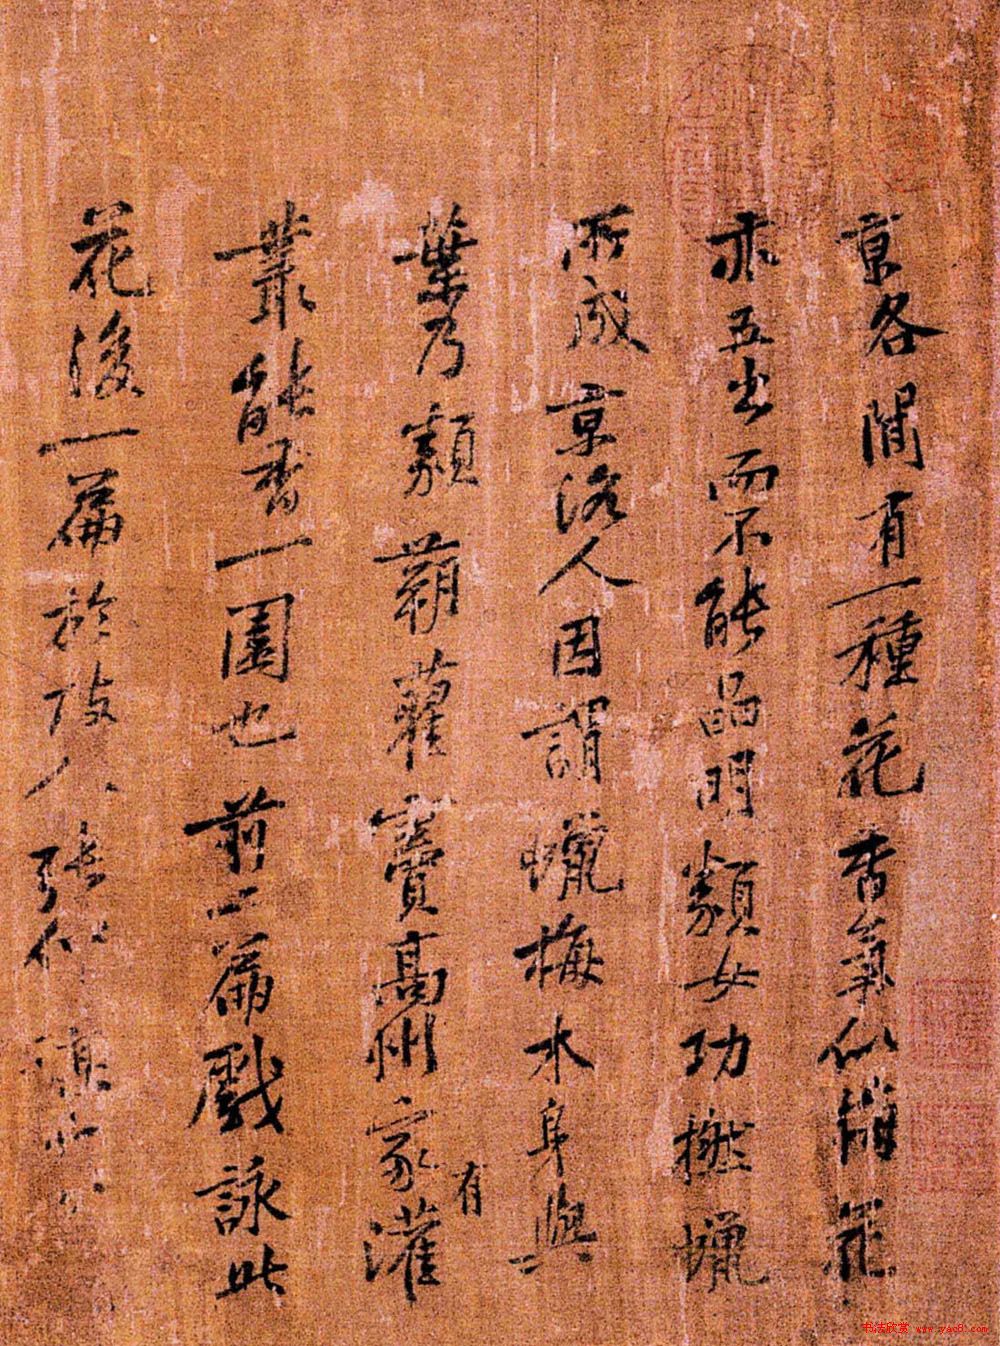 京各閒有一種花香氣似梅花
亦五出而不能晶明類女功撚蠟
所成京洛人因謂蠟梅木身與
葉乃類蒴藋竇高州家有灌
叢能香一園也前二篇戲詠此
花後一篇於故人張仲謀
书法欣赏 www.yac8.com